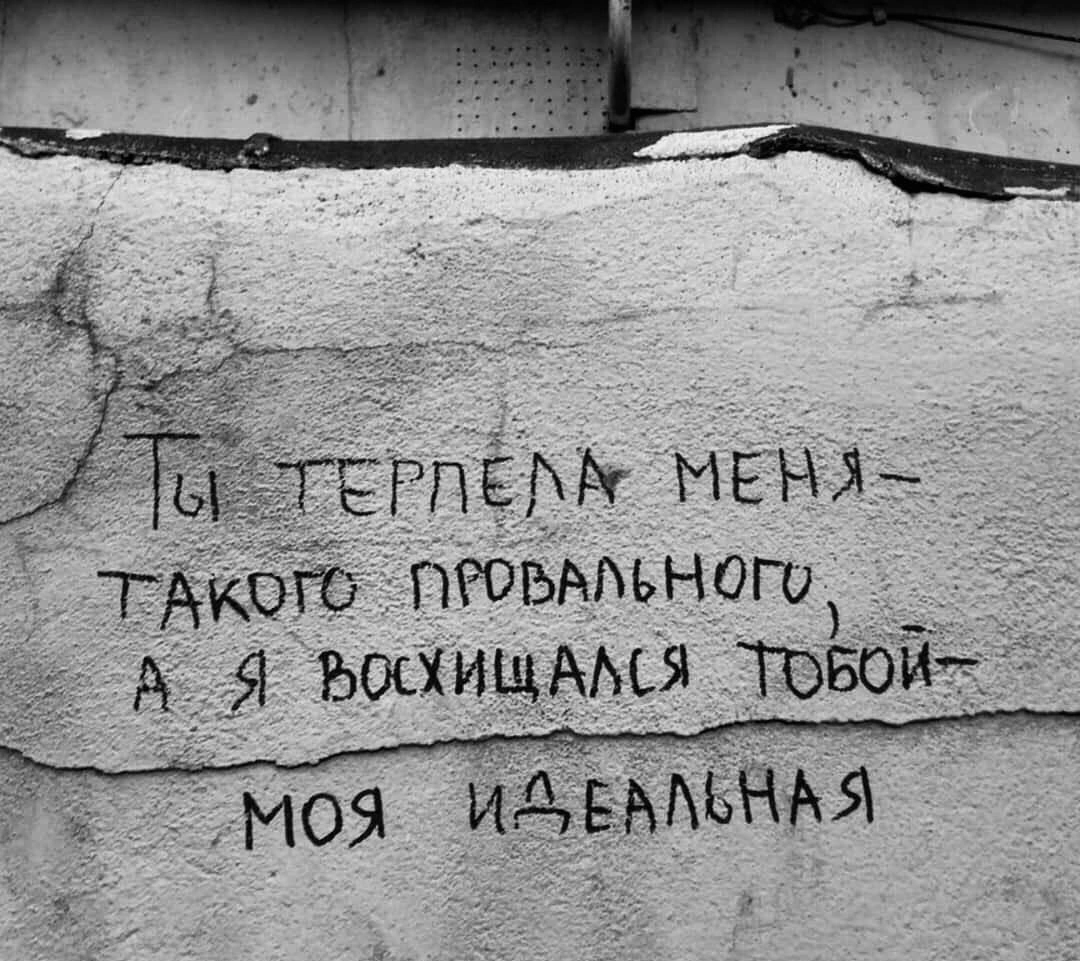 Ты ТЕРПЕЛА МЕНЯ—
ТАКОГО ПРОВАЛЬНОГО,
А Я ВОСХИЩАЛСЯ ТОБОЙ—
МОЯ ИДЕАЛЬНАЯ